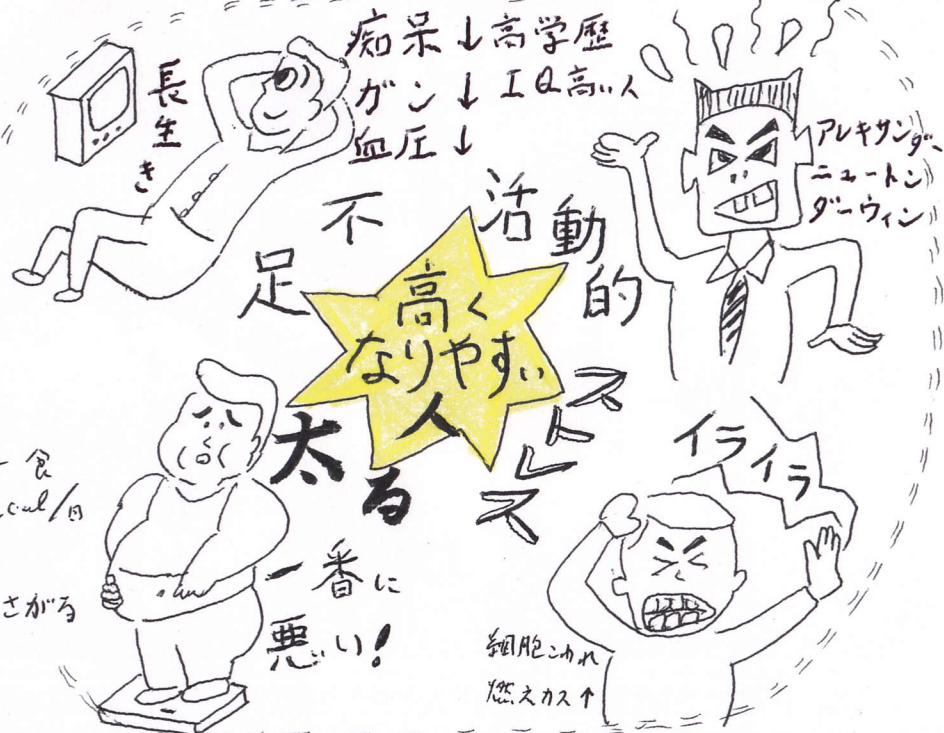 長生き
痴呆↓高学歴
ガン↓IQ高い人
血圧↓
アレキサンダー、
ニュートン
ダーウィン
不足
活動的
高く
なりやすい
人
太る
ストレス
イライラ
一番に
悪い!
食
さがる
細胞こわれ
燃えカス↑